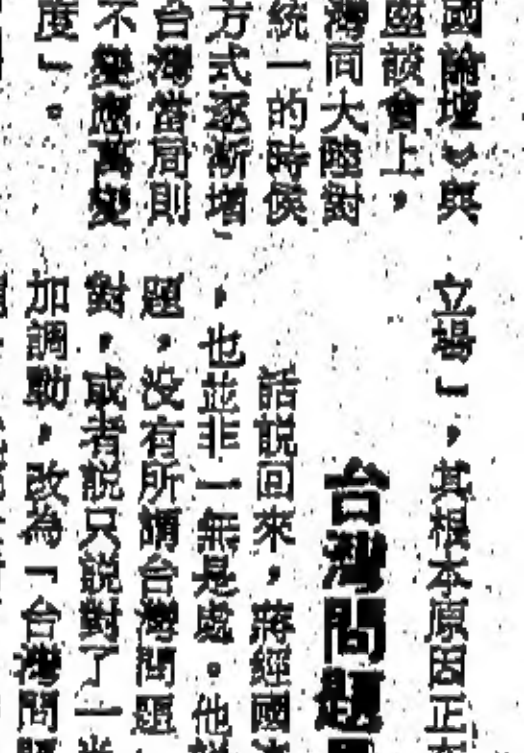 國論壇》與
座談會上，
灣同大陸對
統一的時候
方式逐漸增
台灣當局則
不變應萬變
度」。
立場」，其根本原因正
台灣問題
話說回來，蔣經國
，也並非一無是處。他
題，沒有所謂台灣問題
對，或者說只說對了一半
加調動，改為「台灣問